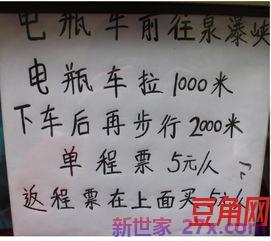 电瓶车前往泉瀑峡
电瓶车拉1000米
下车后再步行2000米
单程票 5元/人
返程票在上面买 5元/人
豆角网
新世家 27x.com